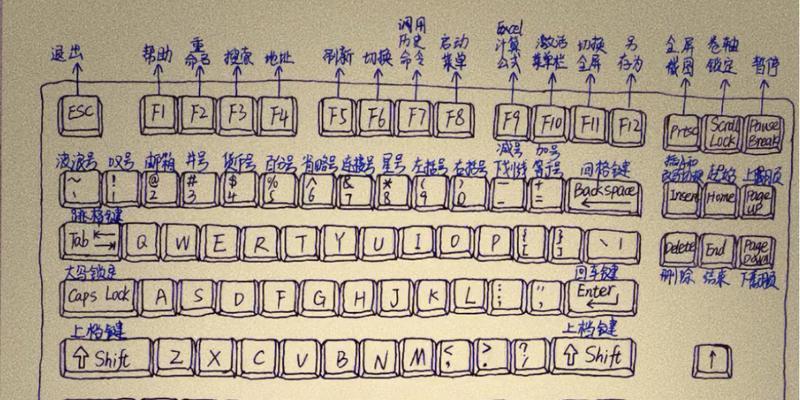 退出 帮助 重命名 搜索 地址 刷新 切换 调用历史命令 启动菜单 Excel计算公式 激活菜单栏 切换全屏 另存为 全屏截图 卷轴锁定 暂停
ESC F1 F2 F3 F4 F5 F6 F7 F8 F9 F10 F11 F12 Prtsc Scroll Lock Pause Break
波浪号 叹号 邮箱 井号 货币号 百分号 省略号 连接号 星号 左括号 右括号 减号下划线 加号等号 回格键 起始 上翻页
~ ` ! 1 @ 2 # 3 $ 4 % 5 ^ 6 & 7 * 8 ( 9 ) 0 — - + = Backspace Insert Home Page up
跳档键
Tab Q W E R T Y U I O P { [ } ] \ | Delete End Page Down
大写锁定 回车键 删除 结束 下翻页
Caps Lock A S D F G H J K L : ; " ' Enter
上档键 上档键
⇧ Shift Z X C V B N M < , > . ? / ⇧ Shift ↑